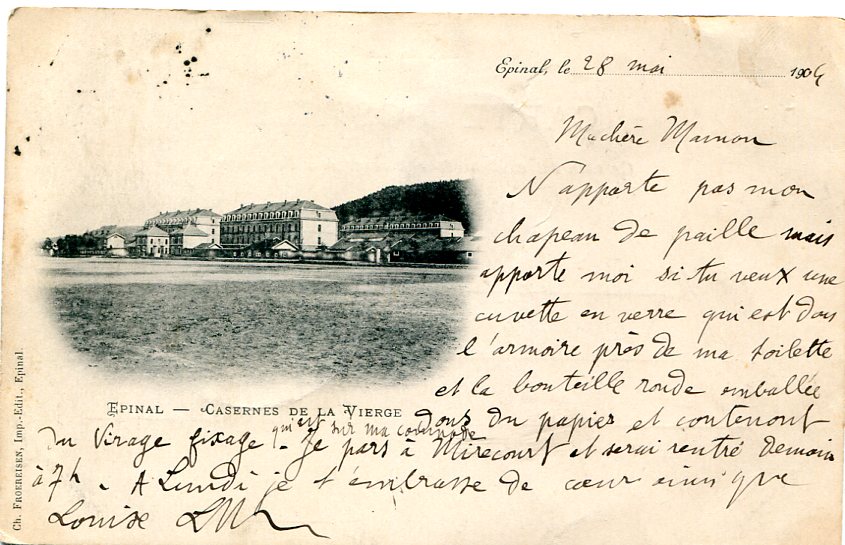 Epinal, le 28 mai 1904
Ma chère Maman
N'apporte pas mon
chapeau de paille mais
apporte moi si tu veux une
cuvette en verre qui est dans
l'armoire près de ma toilette
et la bouteille ronde emballée
EPINAL — CASERNES DE LA VIERGE
dans du papier et contenant
du Virage fixage qui est sur ma commode - Je pars à Mirecourt et serai rentré demain
à 7h. A Lundi je t'embrasse de cœur ainsi que
Louise
Ch. FROEREISEN, Imp.-Edit., Epinal.